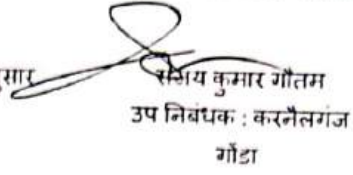 संजय कुमार गौतम
उप निबंधक : करनैलगंज
गोंडा